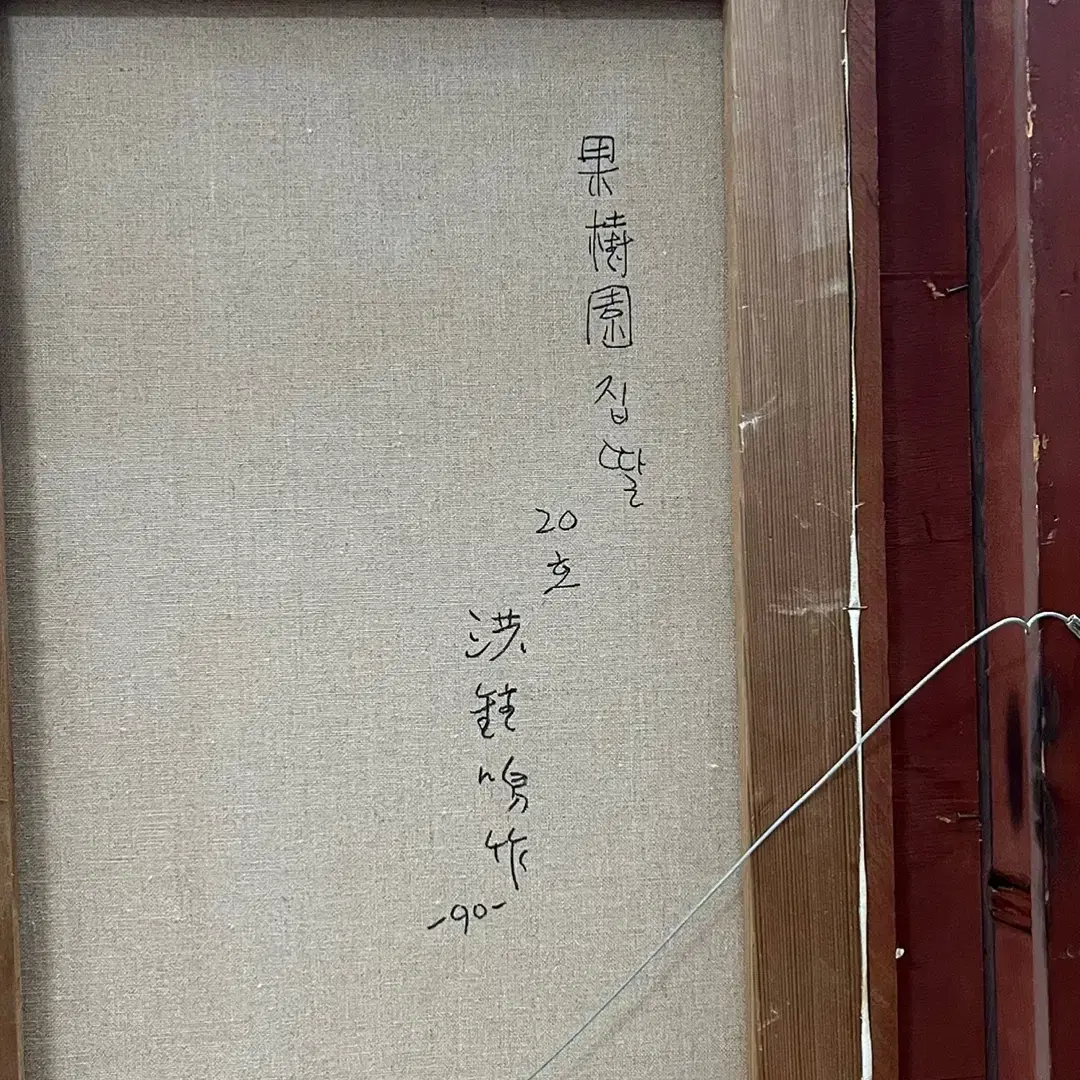 果樹園집딸
20호
洪鍾鳴作
-90-